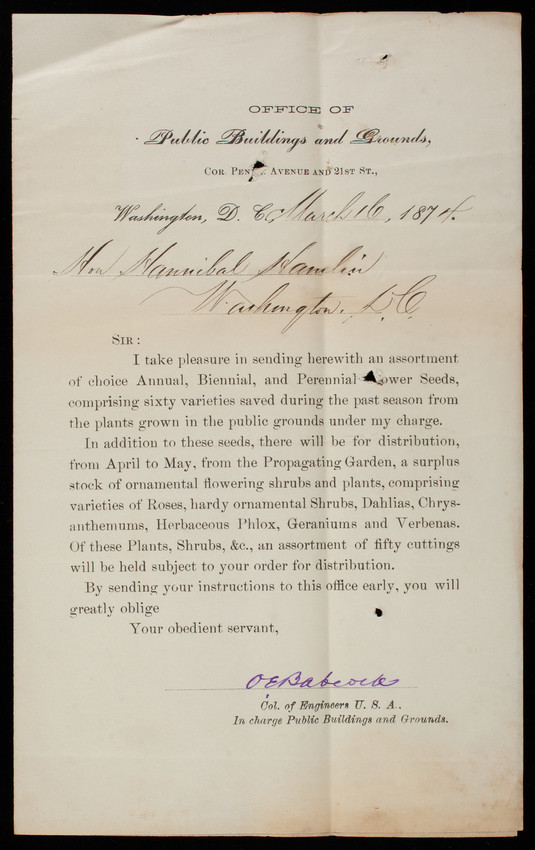 OFFICE OF
Public Buildings and Grounds,
COR. PEN. AVENUE AND 21ST ST.,
Washington, D. C. March 16, 1874.
Hon Hannibal Hamlin
Washington, D.C.
SIR:
I take pleasure in sending herewith an assortment
of choice Annual, Biennial, and Perennial ower Seeds,
comprising sixty varieties saved during the past season from
the plants grown in the public grounds under my charge.
In addition to these seeds, there will be for distribution,
from April to May, from the Propagating Garden, a surplus
stock of ornamental flowering shrubs and plants, comprising
varieties of Roses, hardy ornamental Shrubs, Dahlias, Chrys-
anthemums, Herbaceous Phlox, Geraniums and Verbenas.
Of these Plants, Shrubs, &c., an assortment of fifty cuttings
will be held subject to your order for distribution.
By sending your instructions to this office early, you will
greatly oblige
Your obedient servant,
O E Babcock
Col. of Engineers U. S. A.,
In charge Public Buildings and Grounds.